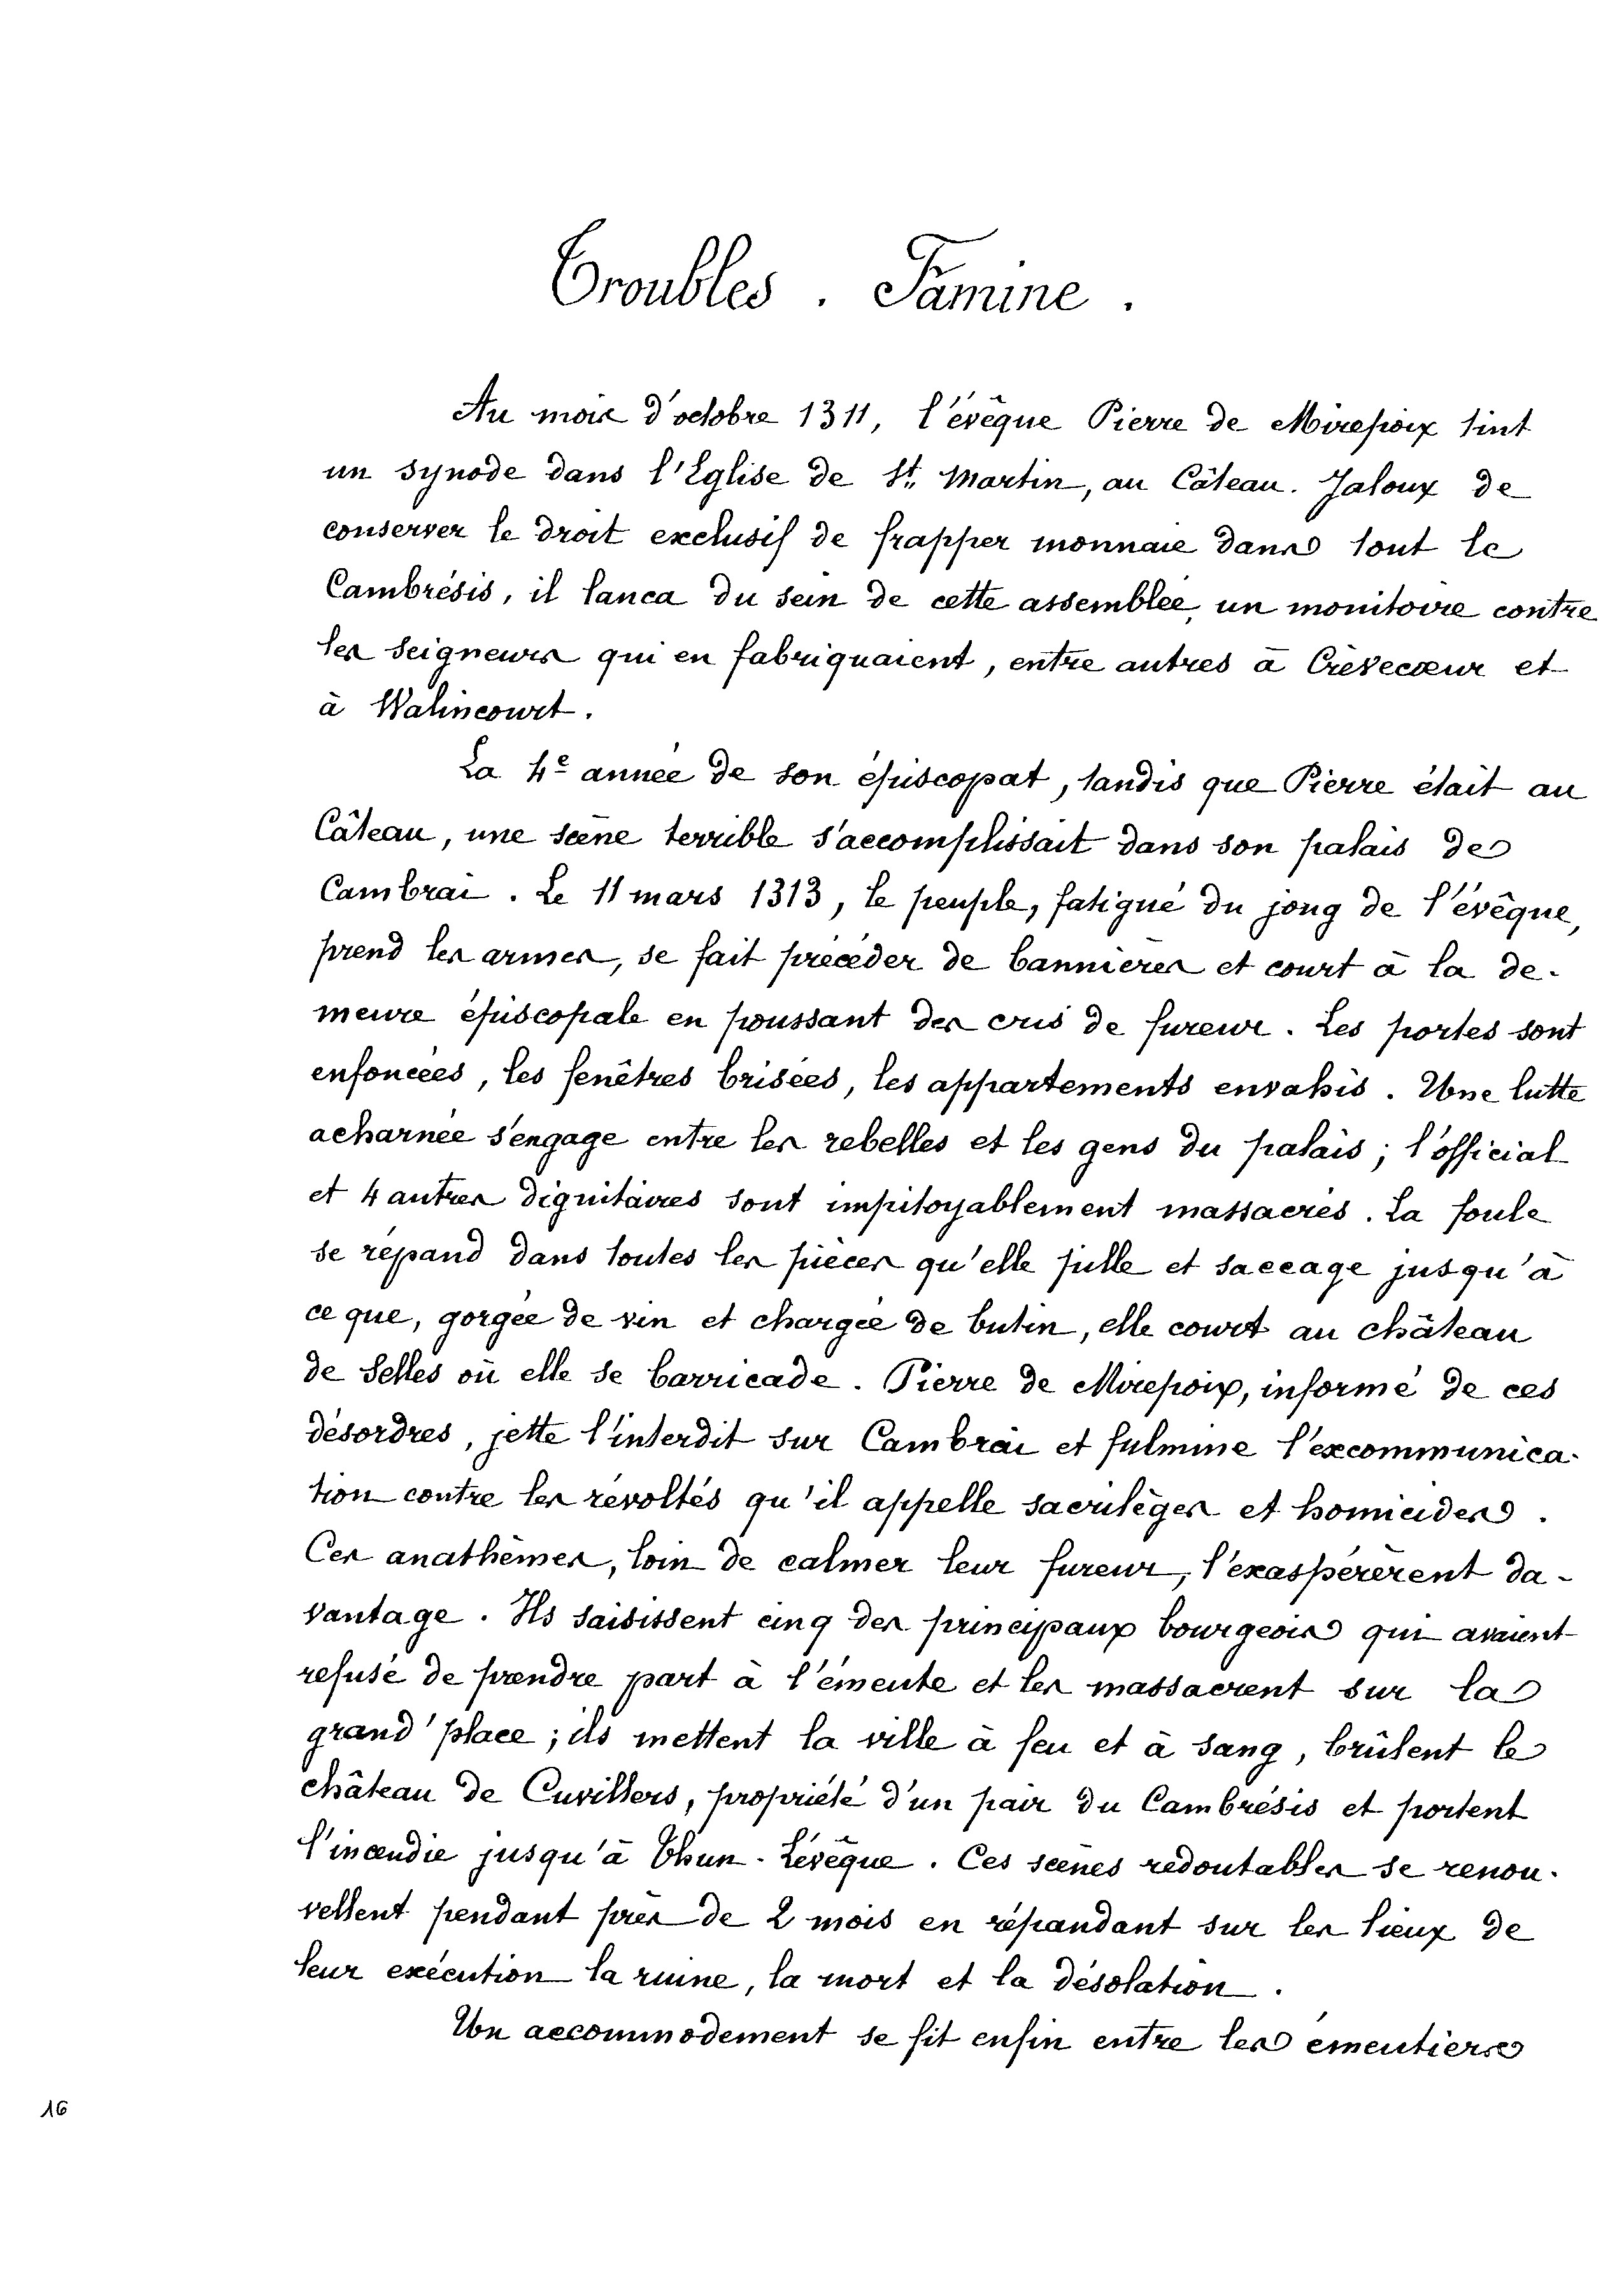 Troubles . Famine .
Au mois d'octobre 1311, l'évêque Pierre de Mirepoix tint
un synode dans l'Eglise de St. Martin, au Câteau. Jaloux de
conserver le droit exclusif de frapper monnaie dans tout le
Cambrésis, il lanca du sein de cette assemblée, un monitoire contre
les seigneurs qui en fabriquaient, entre autres à Crèvecœur et
à Walincourt.
La 4e année de son épiscopat, tandis que Pierre était au
Câteau, une scène terrible s'accomplissait dans son palais de
Cambrai. Le 11 mars 1313, le peuple, fatigué du joug de l'évêque,
prend les armes, se fait précéder de bannières et court à la de-
meure épiscopale en poussant des cris de fureur. Les portes sont
enfoncées, les fenêtres brisées, les appartements envahis. Une lutte
acharnée s'engage entre les rebelles et les gens du palais ; l'official
et 4 autres dignitaires sont impitoyablement massacrés. La foule
se répand dans toutes les pièces qu'elle pille et saccage jusqu'à
ce que, gorgée de vin et chargée de butin, elle court au château
de Selles où elle se barricade. Pierre de Mirepoix, informé de ces
désordres, jette l'interdit sur Cambrai et fulmine l'excommunica-
tion contre les révoltés qu'il appelle sacrilèges et homicides.
Ces anathèmes, loin de calmer leur fureur, l'exaspérèrent da-
vantage. Ils saisissent cinq des principaux bourgeois qui avaient
refusé de prendre part à l'émeute et les massacrent sur la
grand'place ; ils mettent la ville à feu et à sang, brûlent le
château de Cuvillers, propriété d'un pair du Cambrésis et portent
l'incendie jusqu'à Thun-Lévêque. Ces scènes redoutables se renou-
vellent pendant près de 2 mois en répandant sur les lieux de
leur exécution la ruine, la mort et la désolation.
Un accommodement se fit enfin entre les émeutiers
16